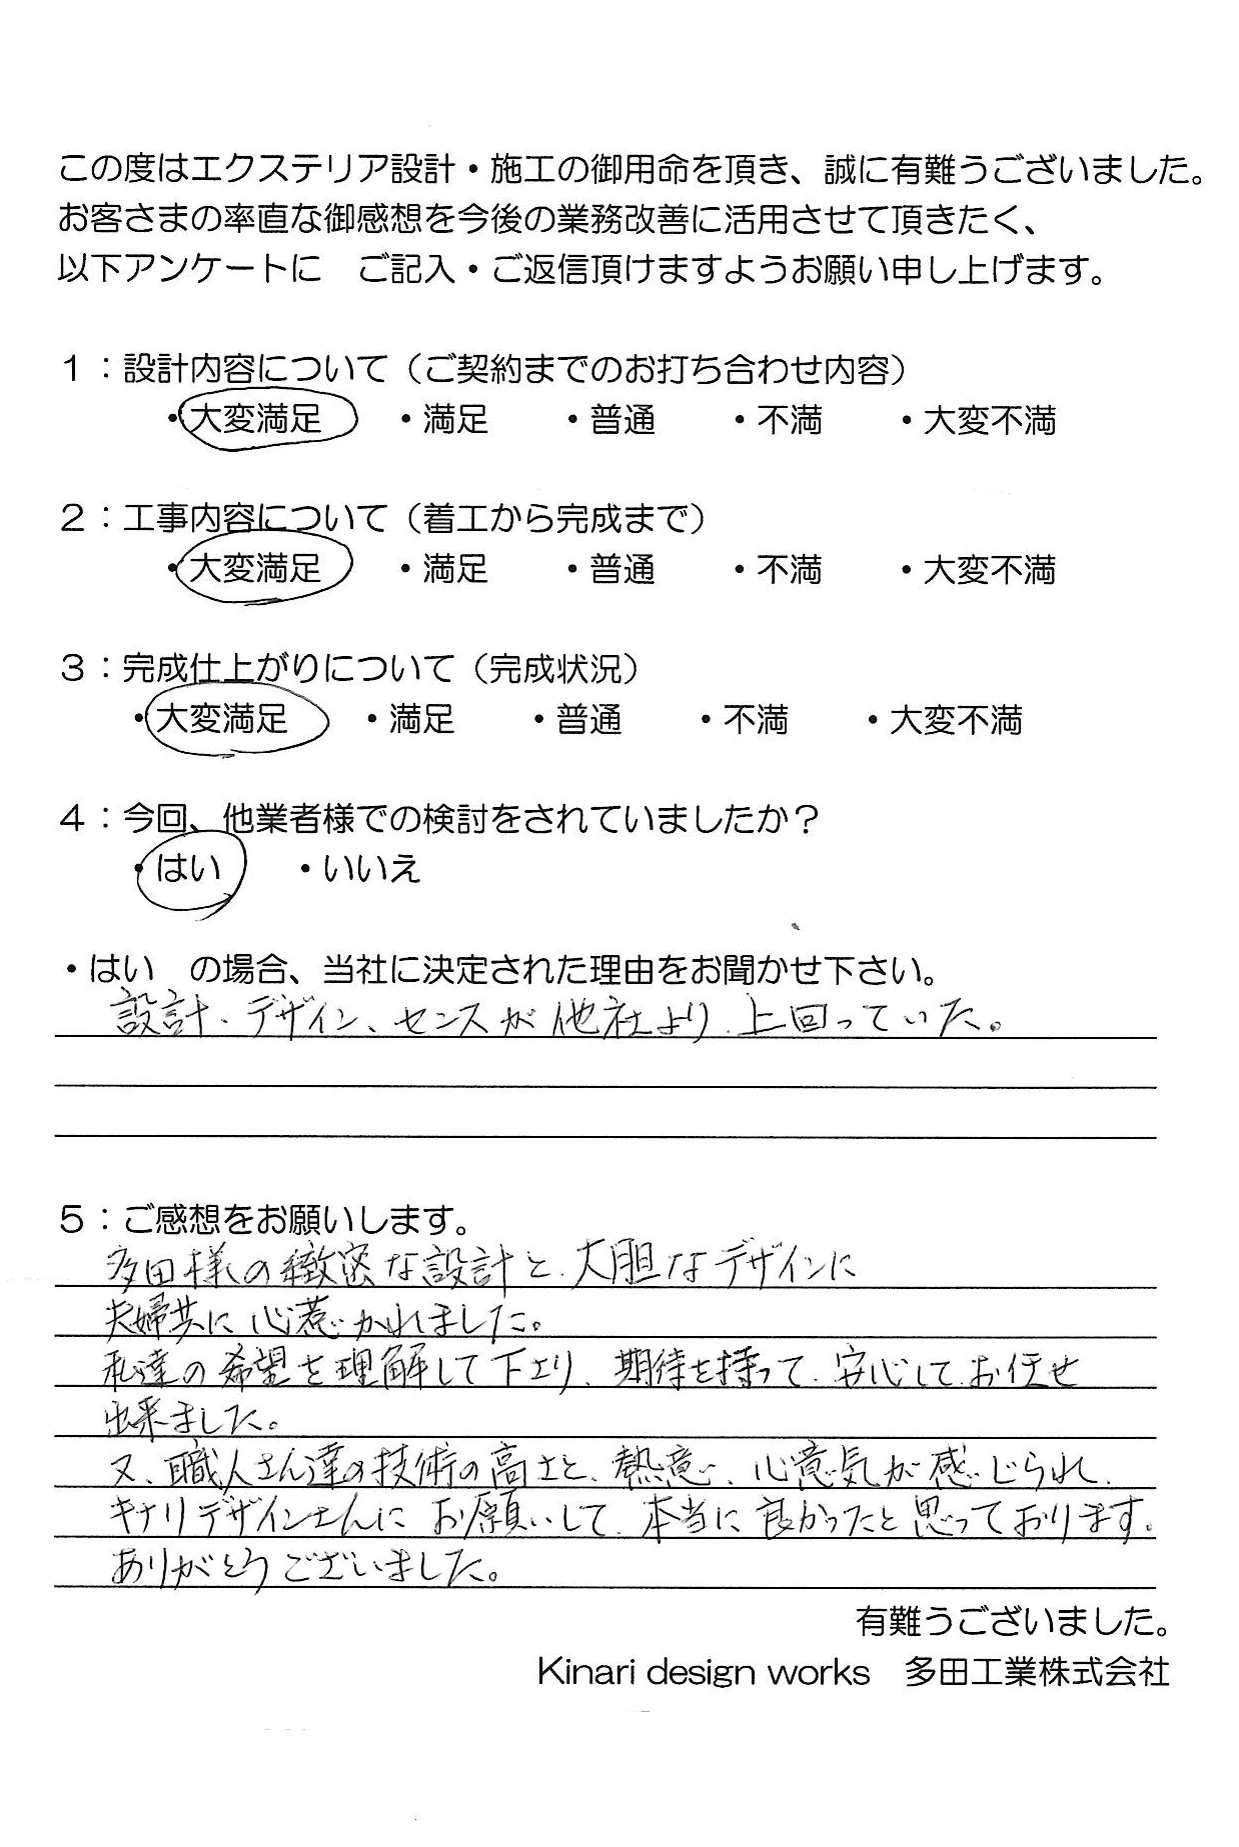 この度はエクステリア設計・施工の御用命を頂き、誠に有難うございました。
お客さまの率直な御感想を今後の業務改善に活用させて頂きたく、
以下アンケートに　ご記入・ご返信頂けますようお願い申し上げます。
１：設計内容について（ご契約までのお打ち合わせ内容）
・大変満足　・満足　・普通　・不満　・大変不満
２：工事内容について（着工から完成まで）
・大変満足　・満足　・普通　・不満　・大変不満
３：完成仕上がりについて（完成状況）
・大変満足　・満足　・普通　・不満　・大変不満
４：今回、他業者様での検討をされていましたか？
・はい　・いいえ
・はい　の場合、当社に決定された理由をお聞かせ下さい。
設計、デザイン、センスが他社より、上回っていた。
５：ご感想をお願いします。
多田様の緻密な設計と、大胆なデザインに
夫婦共に心惹かれました。
私達の希望を理解して下さり、期待を持って、安心して、お任せ
出来ました。
又、職人さん達の技術の高さと、熱意、心意気が感じられ、
キナリデザインさんにお願いして、本当に良かったと思っております。
ありがとうございました。
有難うございました。
Kinari design works　多田工業株式会社